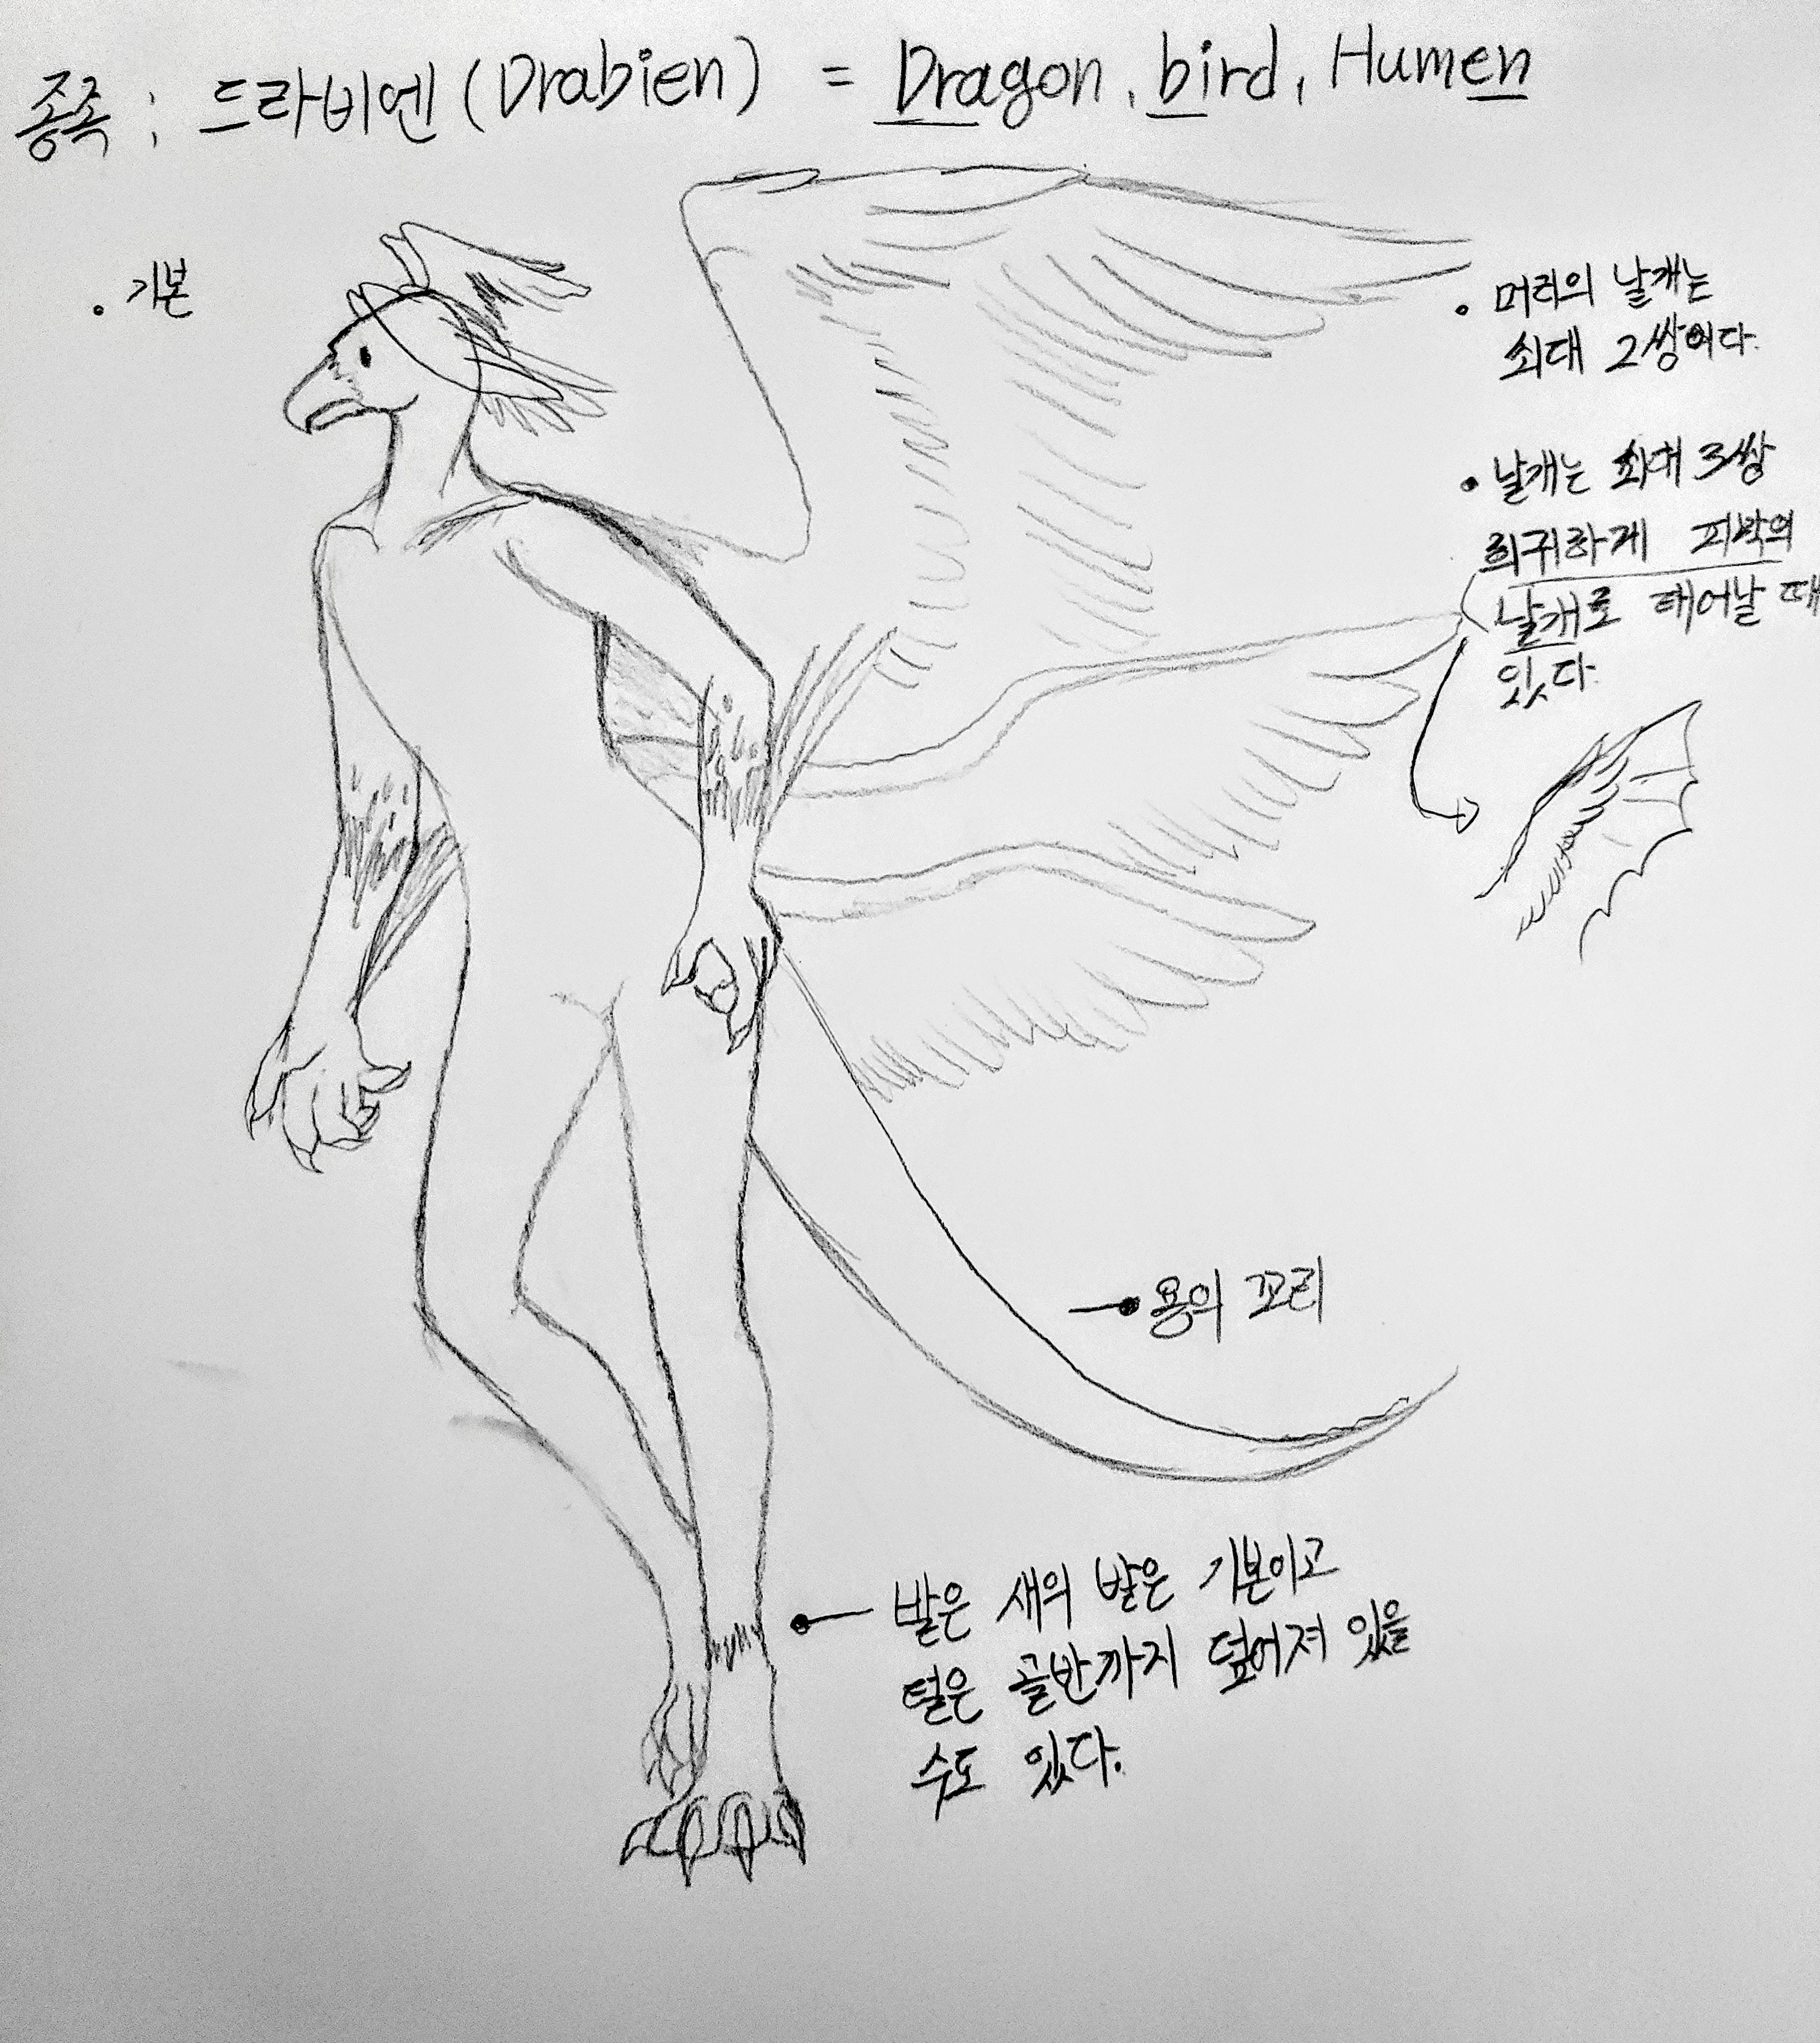 종족 : 드라비엔 (Drabien) = Dragon, bird, Humen
· 기본
· 머리의 날개는
최대 2쌍이다.
· 날개는 최대 3쌍
희귀하게 피막의
날개로 태어날 때
있다.
용의 꼬리
발은 새의 발은 기본이고
털은 골반까지 덮어져 있을
수도 있다.